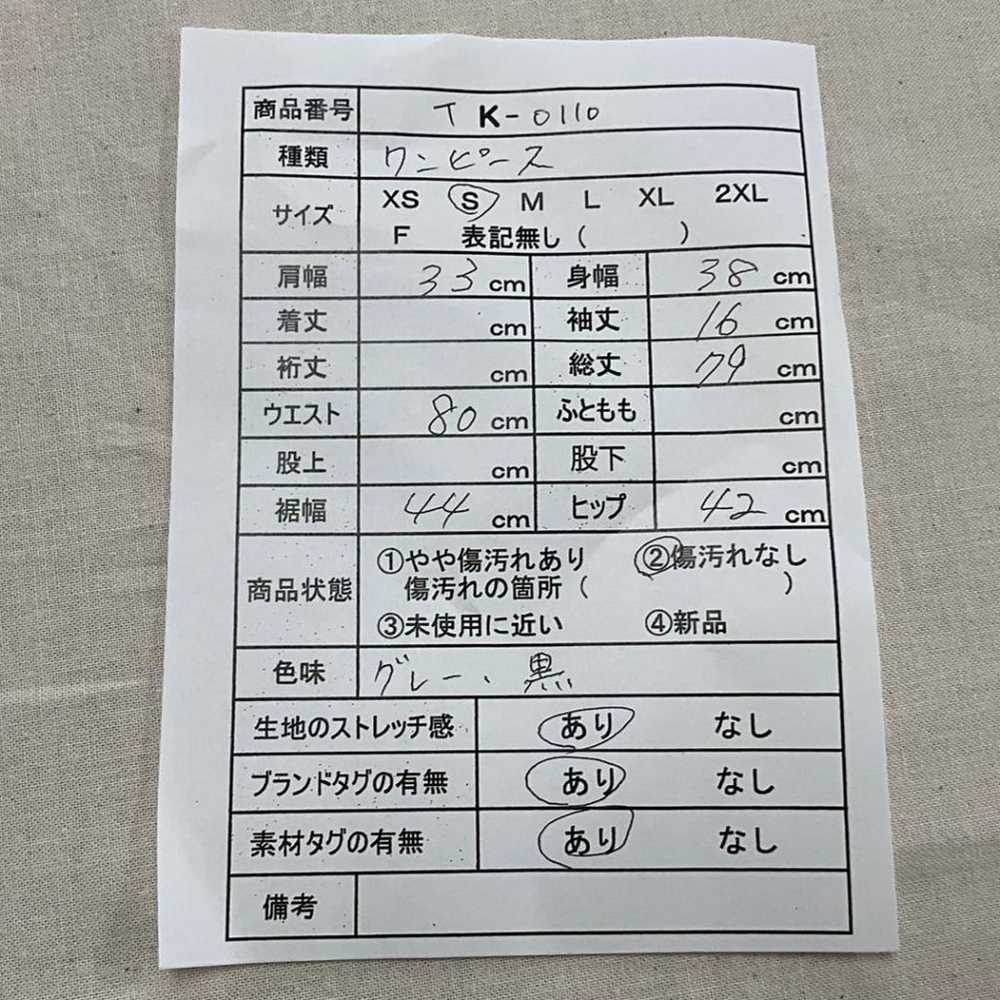 商品番号 TK-0110
種類 ワンピース
サイズ XS S M L XL 2XL
F 表記無し( )
肩幅 33 cm 身幅 38 cm
着丈 cm 袖丈 16 cm
裄丈 cm 総丈 79 cm
ウエスト 80 cm ふともも cm
股上 cm 股下 cm
裾幅 44 cm ヒップ 42 cm
商品状態 ①やや傷汚れあり ②傷汚れなし
傷汚れの箇所( )
③未使用に近い ④新品
色味 グレー、黒
生地のストレッチ感 あり なし
ブランドタグの有無 あり なし
素材タグの有無 あり なし
備考